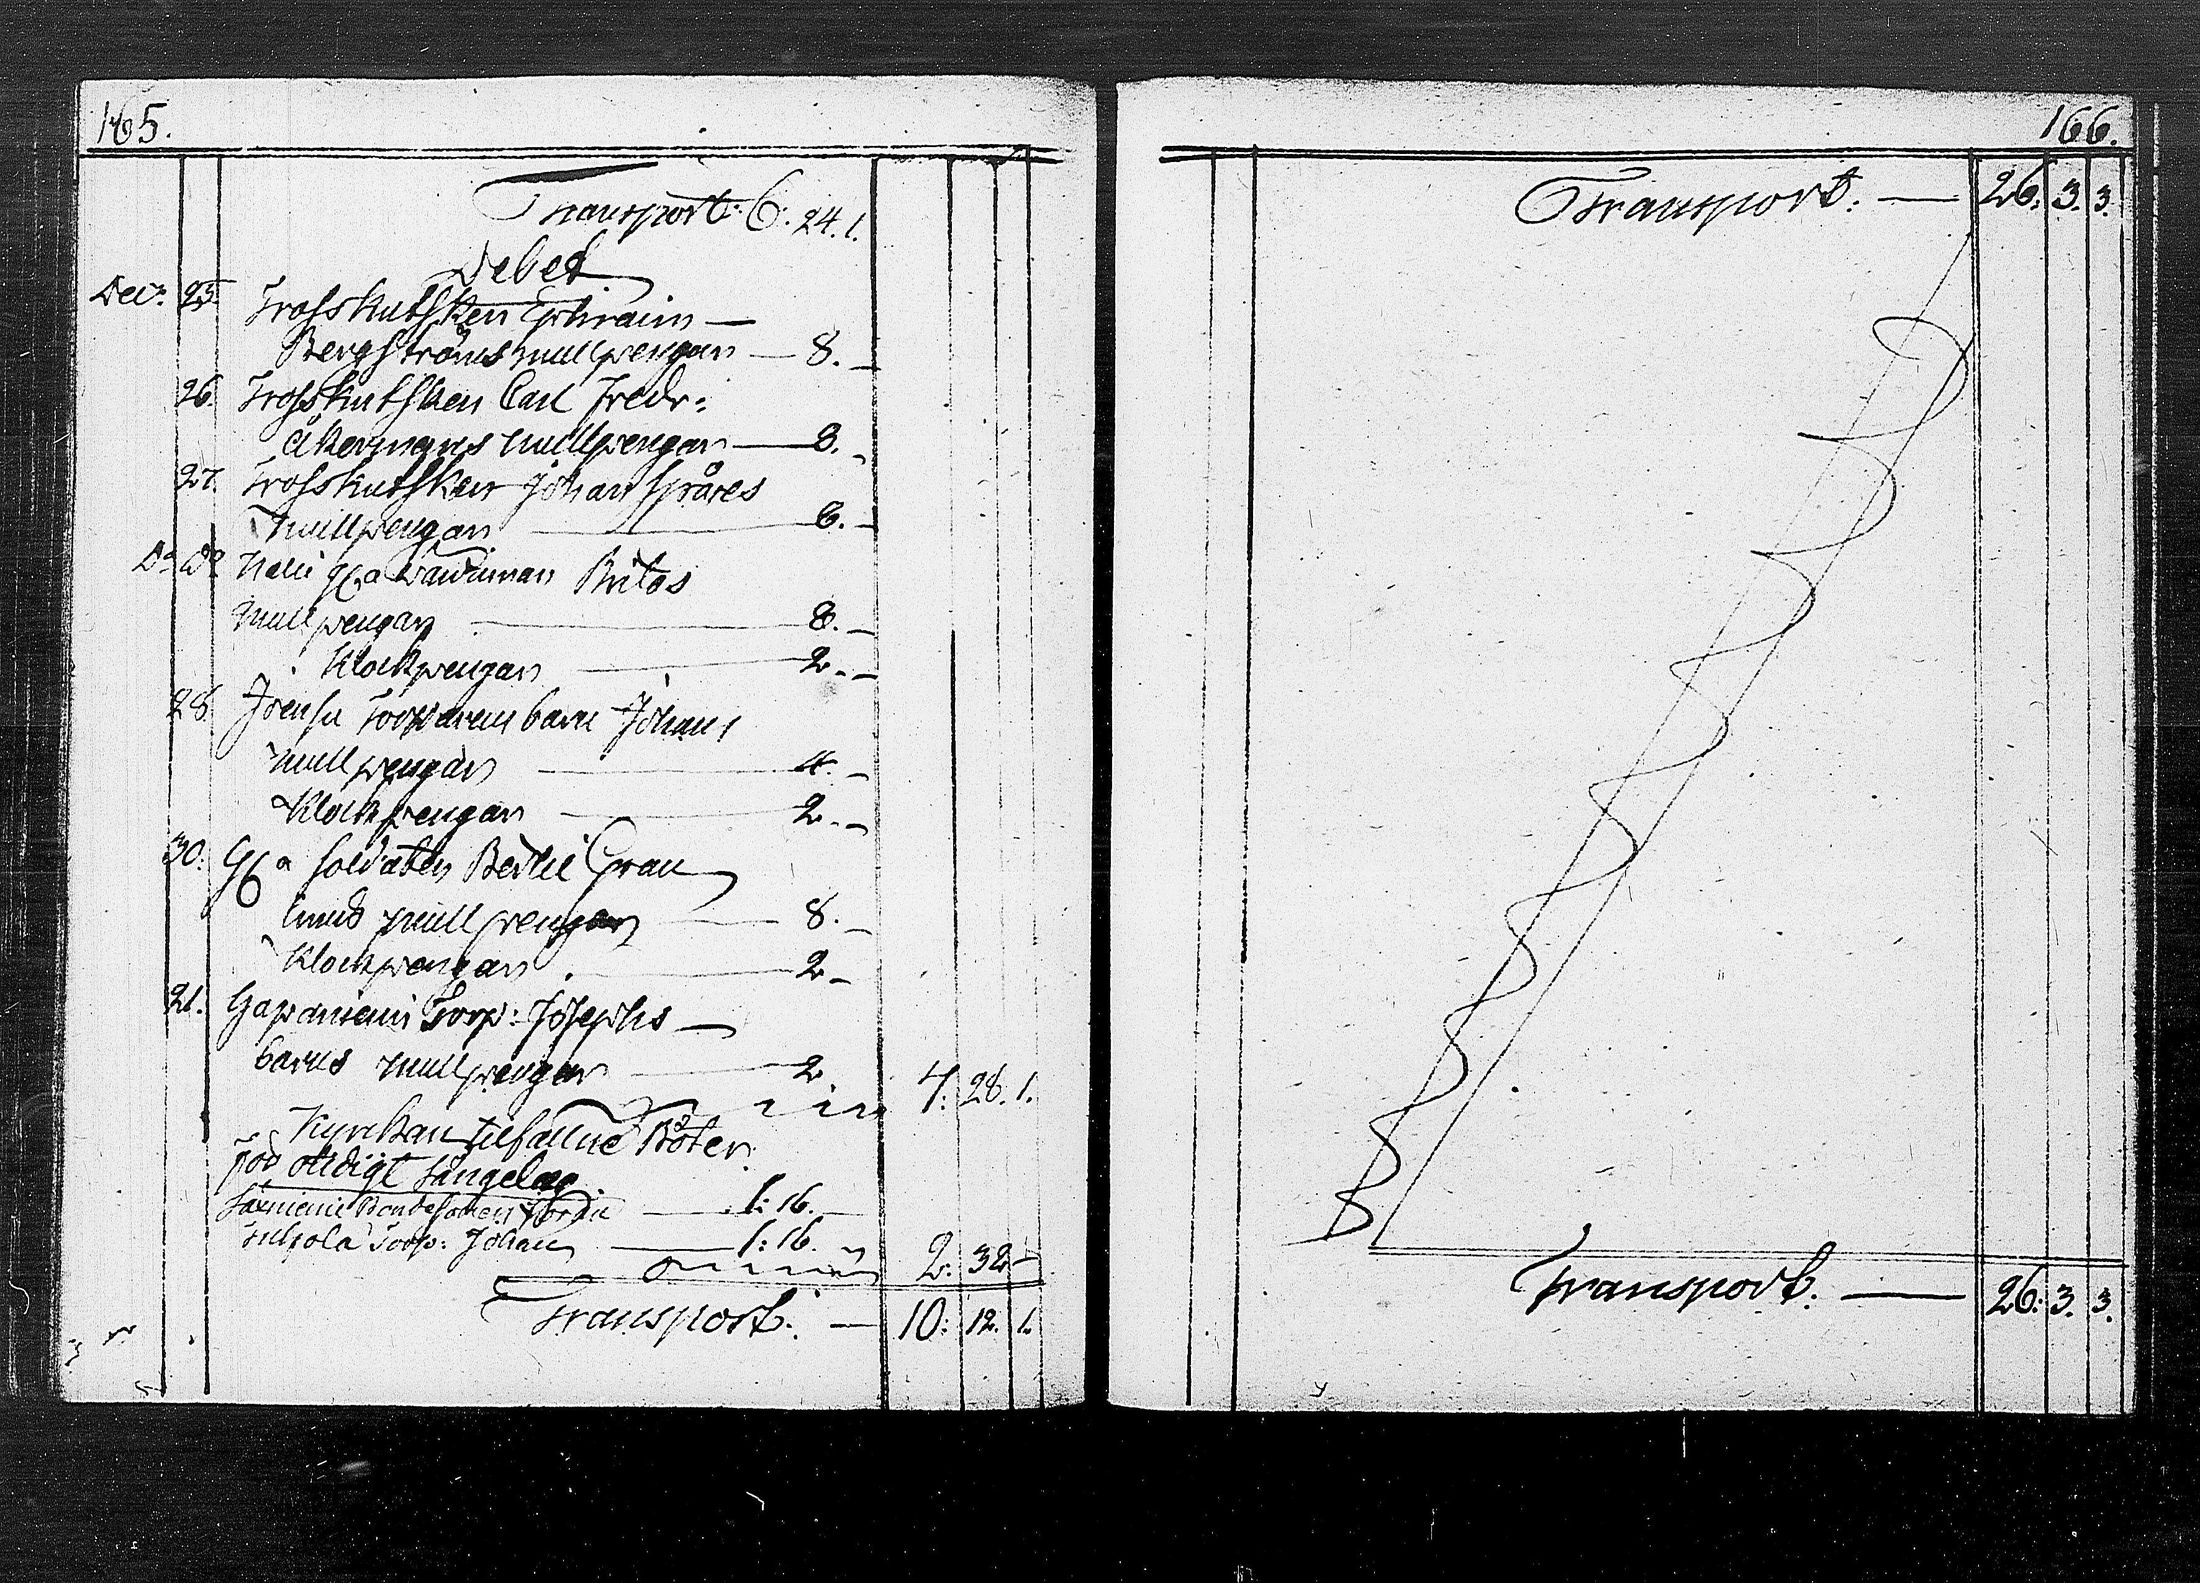 165.
Transport: 6. 24. 1.
Debet
Dec. 25. Trosskuthsken Ephraim —
Bergströms mullpengar — 8. —
26. Trosskuthsken Carl Fredr:
Åkermans mullpengar — 8. —
27. Trosskuthsken Johan Spåres
mullpengar — 6. —
Do Do G:a Britas
mullpengar — 8. —
Klockpengar — 2. —
28. Torparens barn Johans
mullpengar — 4. —
Klockpengar — 2. —
30. G:a Soldaten Bertil Gran
mullpengar — 8. —
Klockpengar — 2 —
21. Torp: Josephs —
barns mullpengar — 2. 7: 28. 1.
Kyrckan tilfallne Böter
för otidigt sängelag.
Bondesonen — 1: 16. —
Torp: Johan — 1: 16. —
2: 32 —
Transport: — 10: 12. 1.
166.
Transport: — 26: 3. 3.
Transport: — 26: 3. 3.